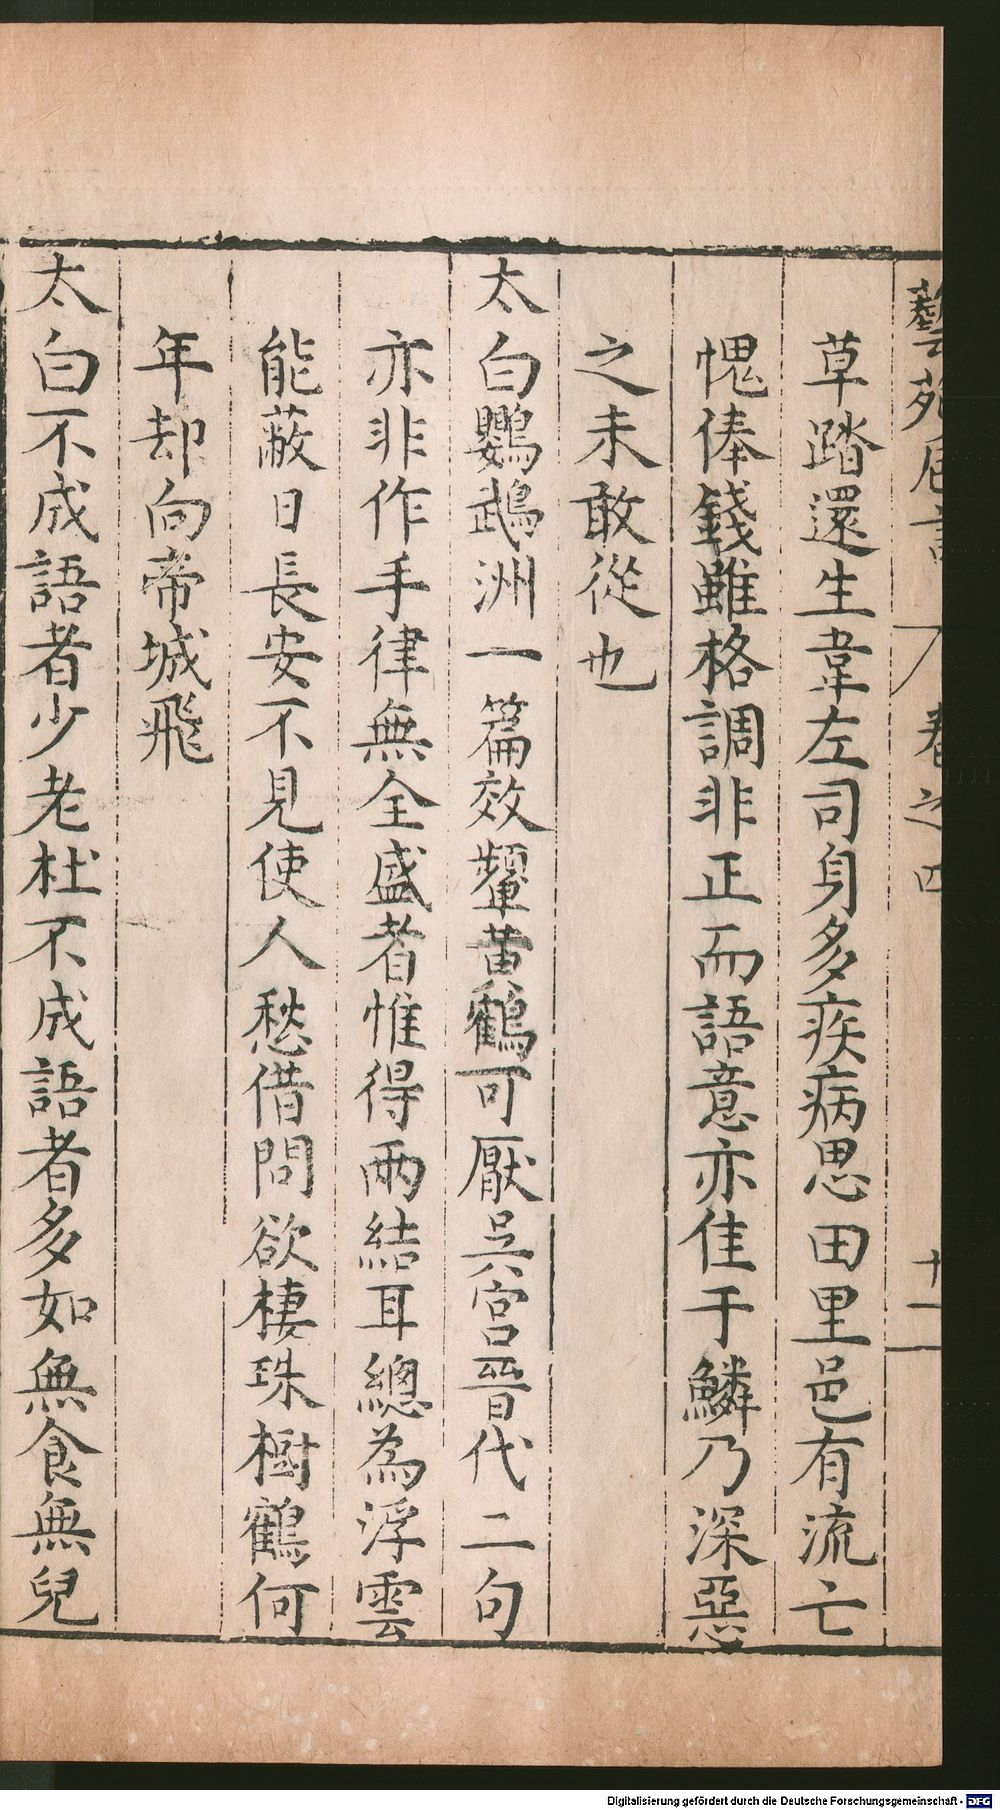 藝苑卮言 卷之四 十一
草踏還生韋左司身多疾病思田里邑有流亡
愧俸錢雖格調非正而語意亦佳于鱗乃深惡
之未敢從也
太白鸚鵡洲一篇效顰黃鶴可厭吳宮晉代二句
亦非作手律無全盛者惟得兩結耳總為浮雲
能蔽日長安不見使人愁借問欲棲珠樹鶴何
年却向帝城飛
太白不成語者少老杜不成語者多如無食無兒
Digitalisierung gefördert durch die Deutsche Forschungsgemeinschaft - DFG